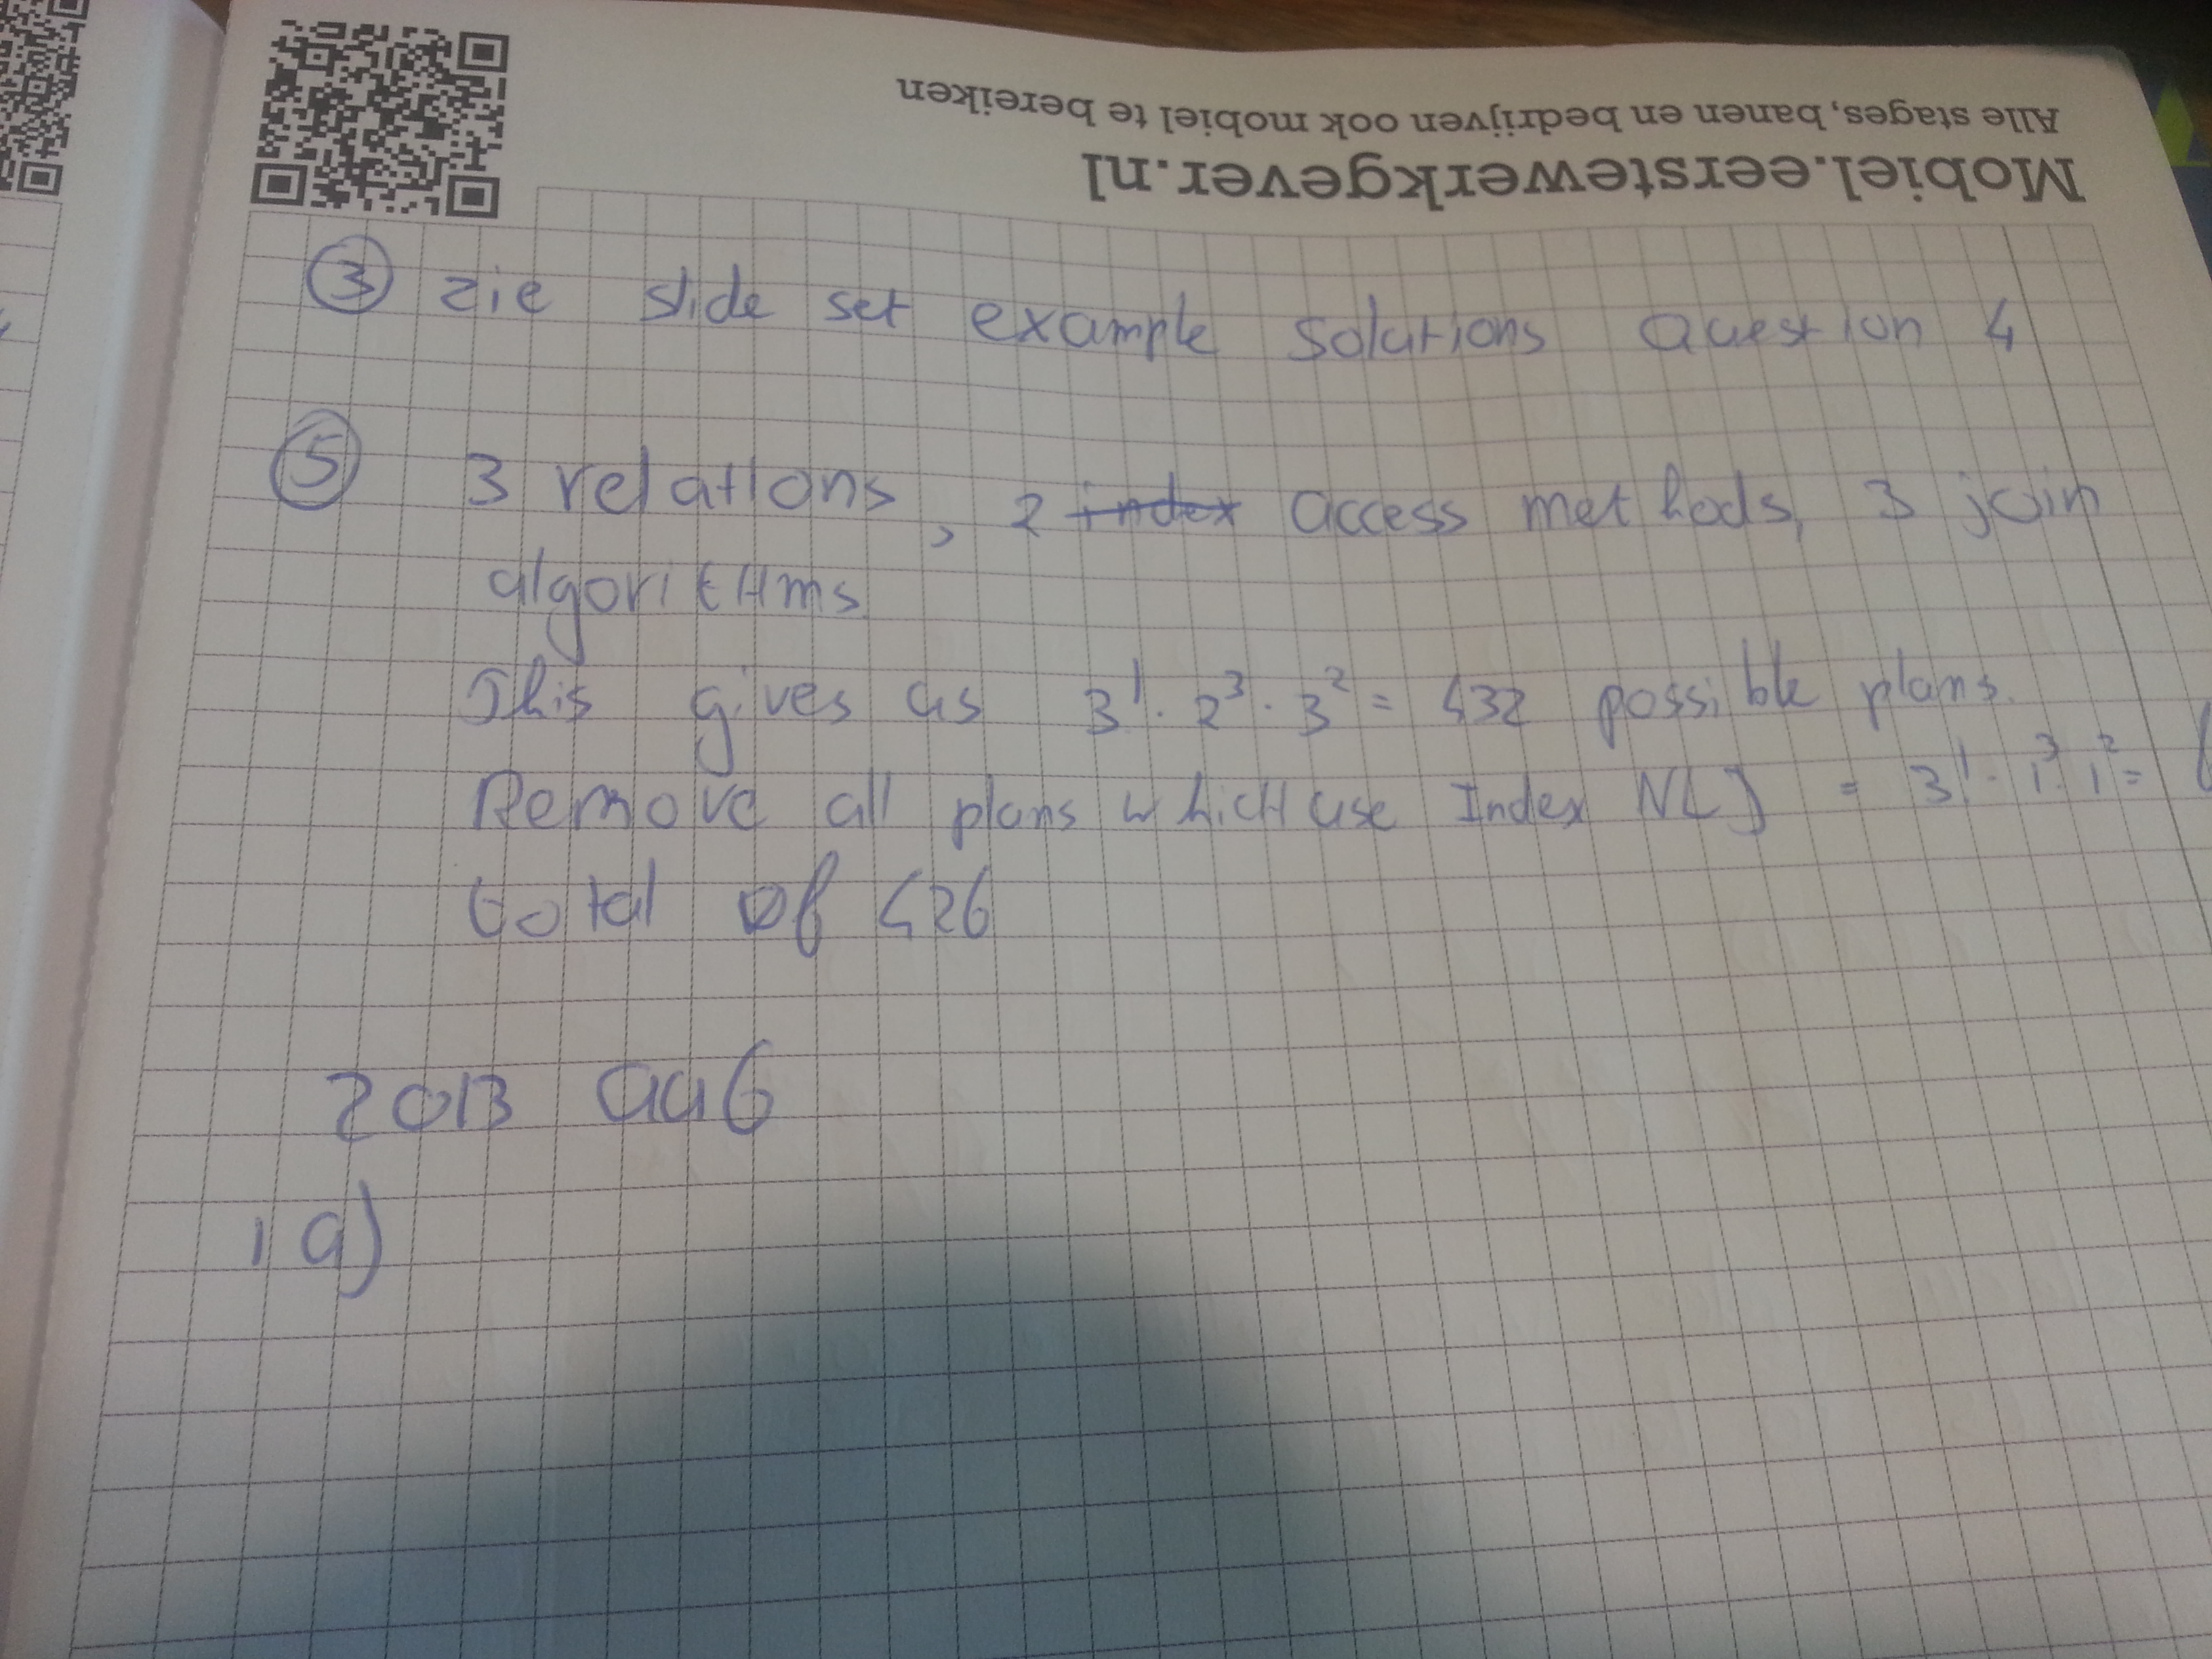 Mobiel.eerstewerkgever.nl
Alle stages, banen en bedrijven ook mobiel te bereiken
③ zie slide set example solutions Question 4
⑤ 3 relations, 2 ~~index~~ access methods, 3 join
algorithms
This gives us 3! · 2³ · 3² = 432 possible plans.
Remove all plans which use Index NLJ = 3! · 1³ · 1² = 6
total of 426
2013 aug
1 a)